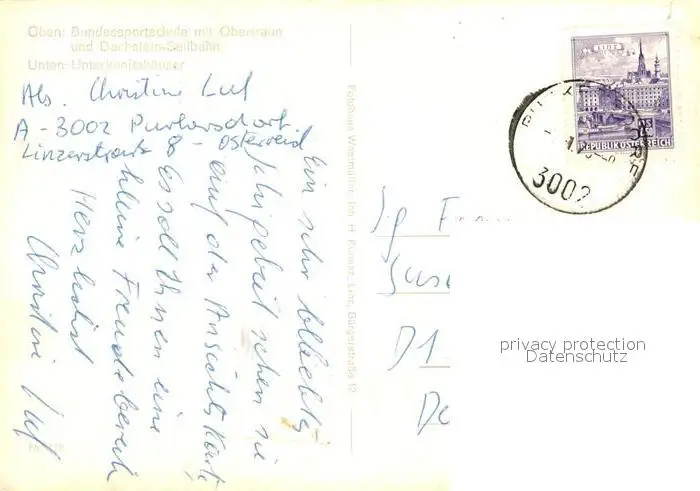 Oben: Bundessportschule mit Obertraun
und Dachstein-Seilbahn
Unten: Unterkunftshäuser
Abs. Christine Luf
A - 3002 Purkersdorf
Linzerstraße 8 - Österreich
Ein sehr beliebtes
Schigebiet sehen sie
auf der Ansichtskarte
Es soll Ihnen eine
kleine Freude bereiten
Herzlichst
Christine Luf
Fotohaus Westmüller, Inh. H. Linz, Bürgerstraße 12
LINZ
REPUBLIK ÖSTERREICH
3002
D1
privacy protection
Datenschutz